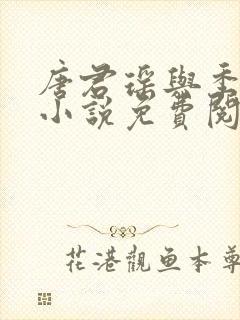 唐君瑶與季
小說免費閱
花港觀鱼本尊